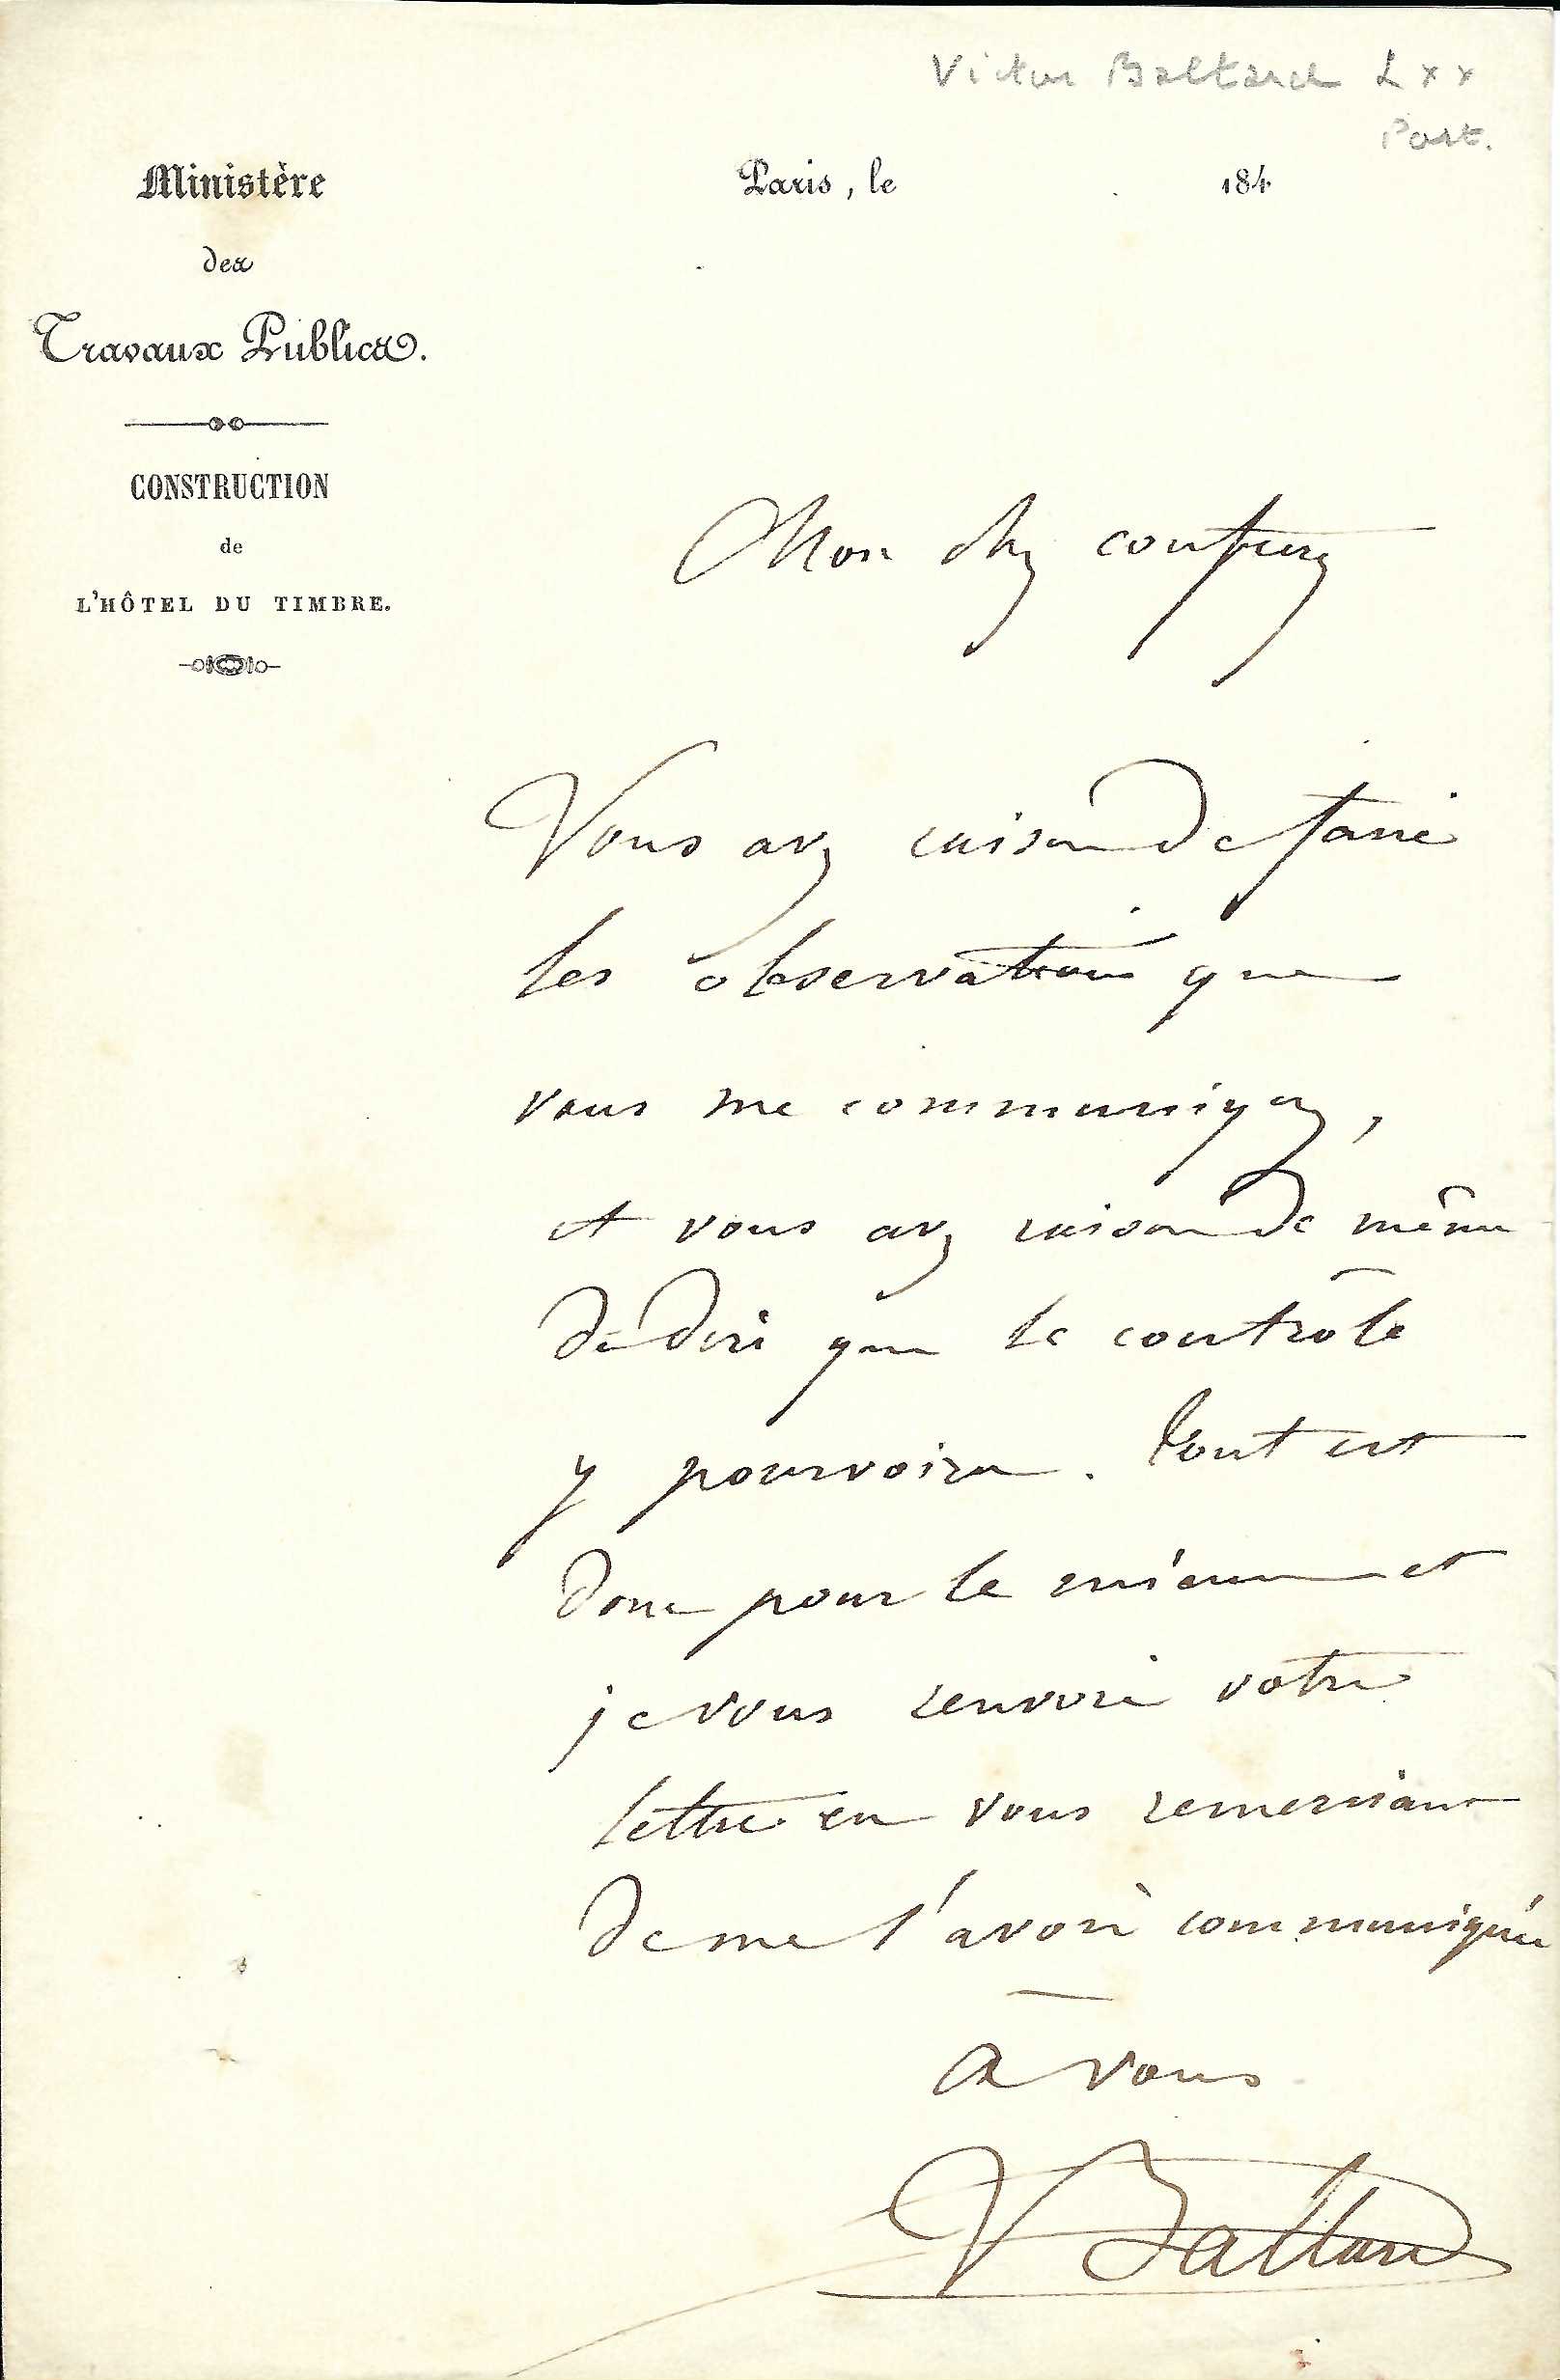 Victor Baltard L x x
Port.
Ministère
des
Travaux Publics.
Paris, le 184
CONSTRUCTION
de
L'HÔTEL DU TIMBRE.
Mon cher confrere
Vous avez raison de faire
les observations que
vous me communiquez,
et vous avez raison de même
de dire que le contrôle
y pourvoira. Tout est
donc pour le mieux et
je vous renvoie votre
lettre en vous remerciant
de me l'avoir communiquée
à vous
V Baltard